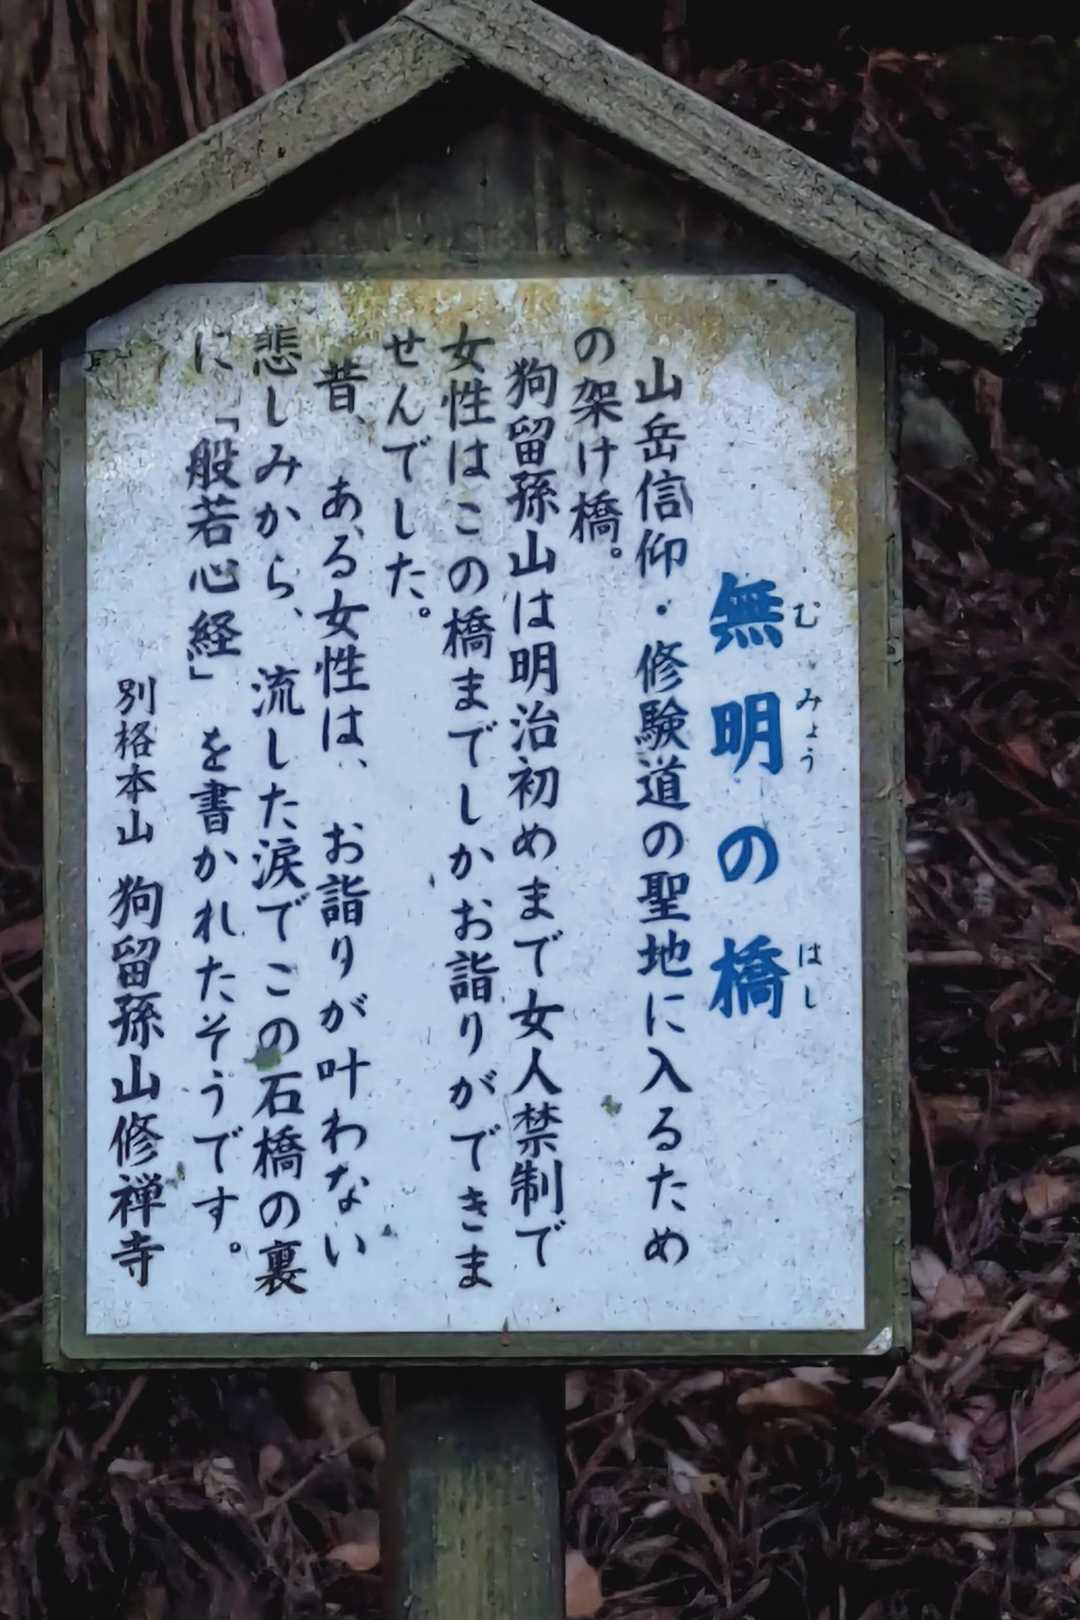 無明の橋
むみょう はし
山岳信仰・修験道の聖地に入るため
の架け橋。
狗留孫山は明治初めまで女人禁制で
女性はこの橋までしかお詣りができま
せんでした。
昔、ある女性は、お詣りが叶わない
悲しみから、流した涙でこの石橋の裏
に「般若心経」を書かれたそうです。
別格本山 狗留孫山修禅寺